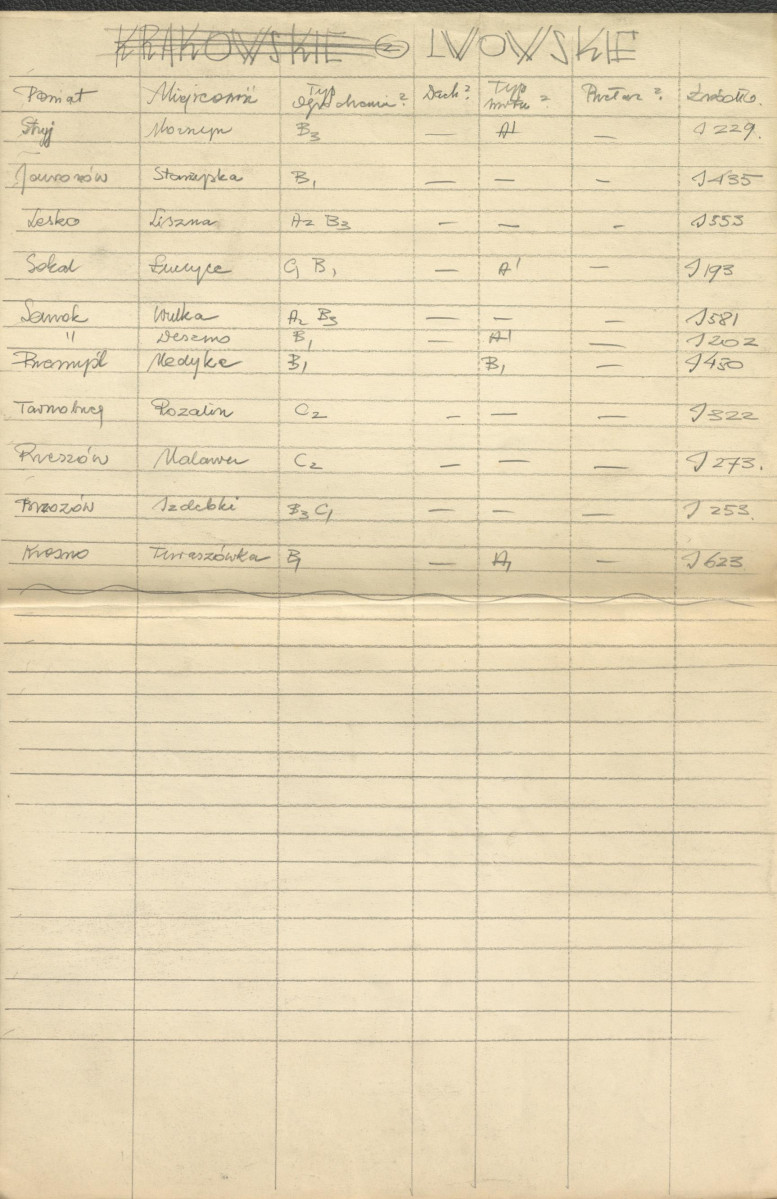 KRAKOWSKIE ② LVOWSKIE
Powiat Miejscowość Typ Ogrodzenia? Dach? Typ ? Przełaz? Źródło.
Stryj B3 — A1 — J 229.
Jaworów Starzyska B1 — — — J 435
Lesko Liszna A2 B3 — — — J 553
Sokal C1 B1 — A1 — J 193
Sanok Wulka A2 B3 — — — J 581
" Deszno B1 — A1 — J 202
Przemyśl Medyka B1 B1 — J 450
Tarnobrzeg Rozalin C2 — — — J 322
Rzeszów Malawa C2 — — — J 273.
Brzozów Izdebki B3 C1 — — — J 253.
Krosno Teraszówka B1 — A1 — J 623